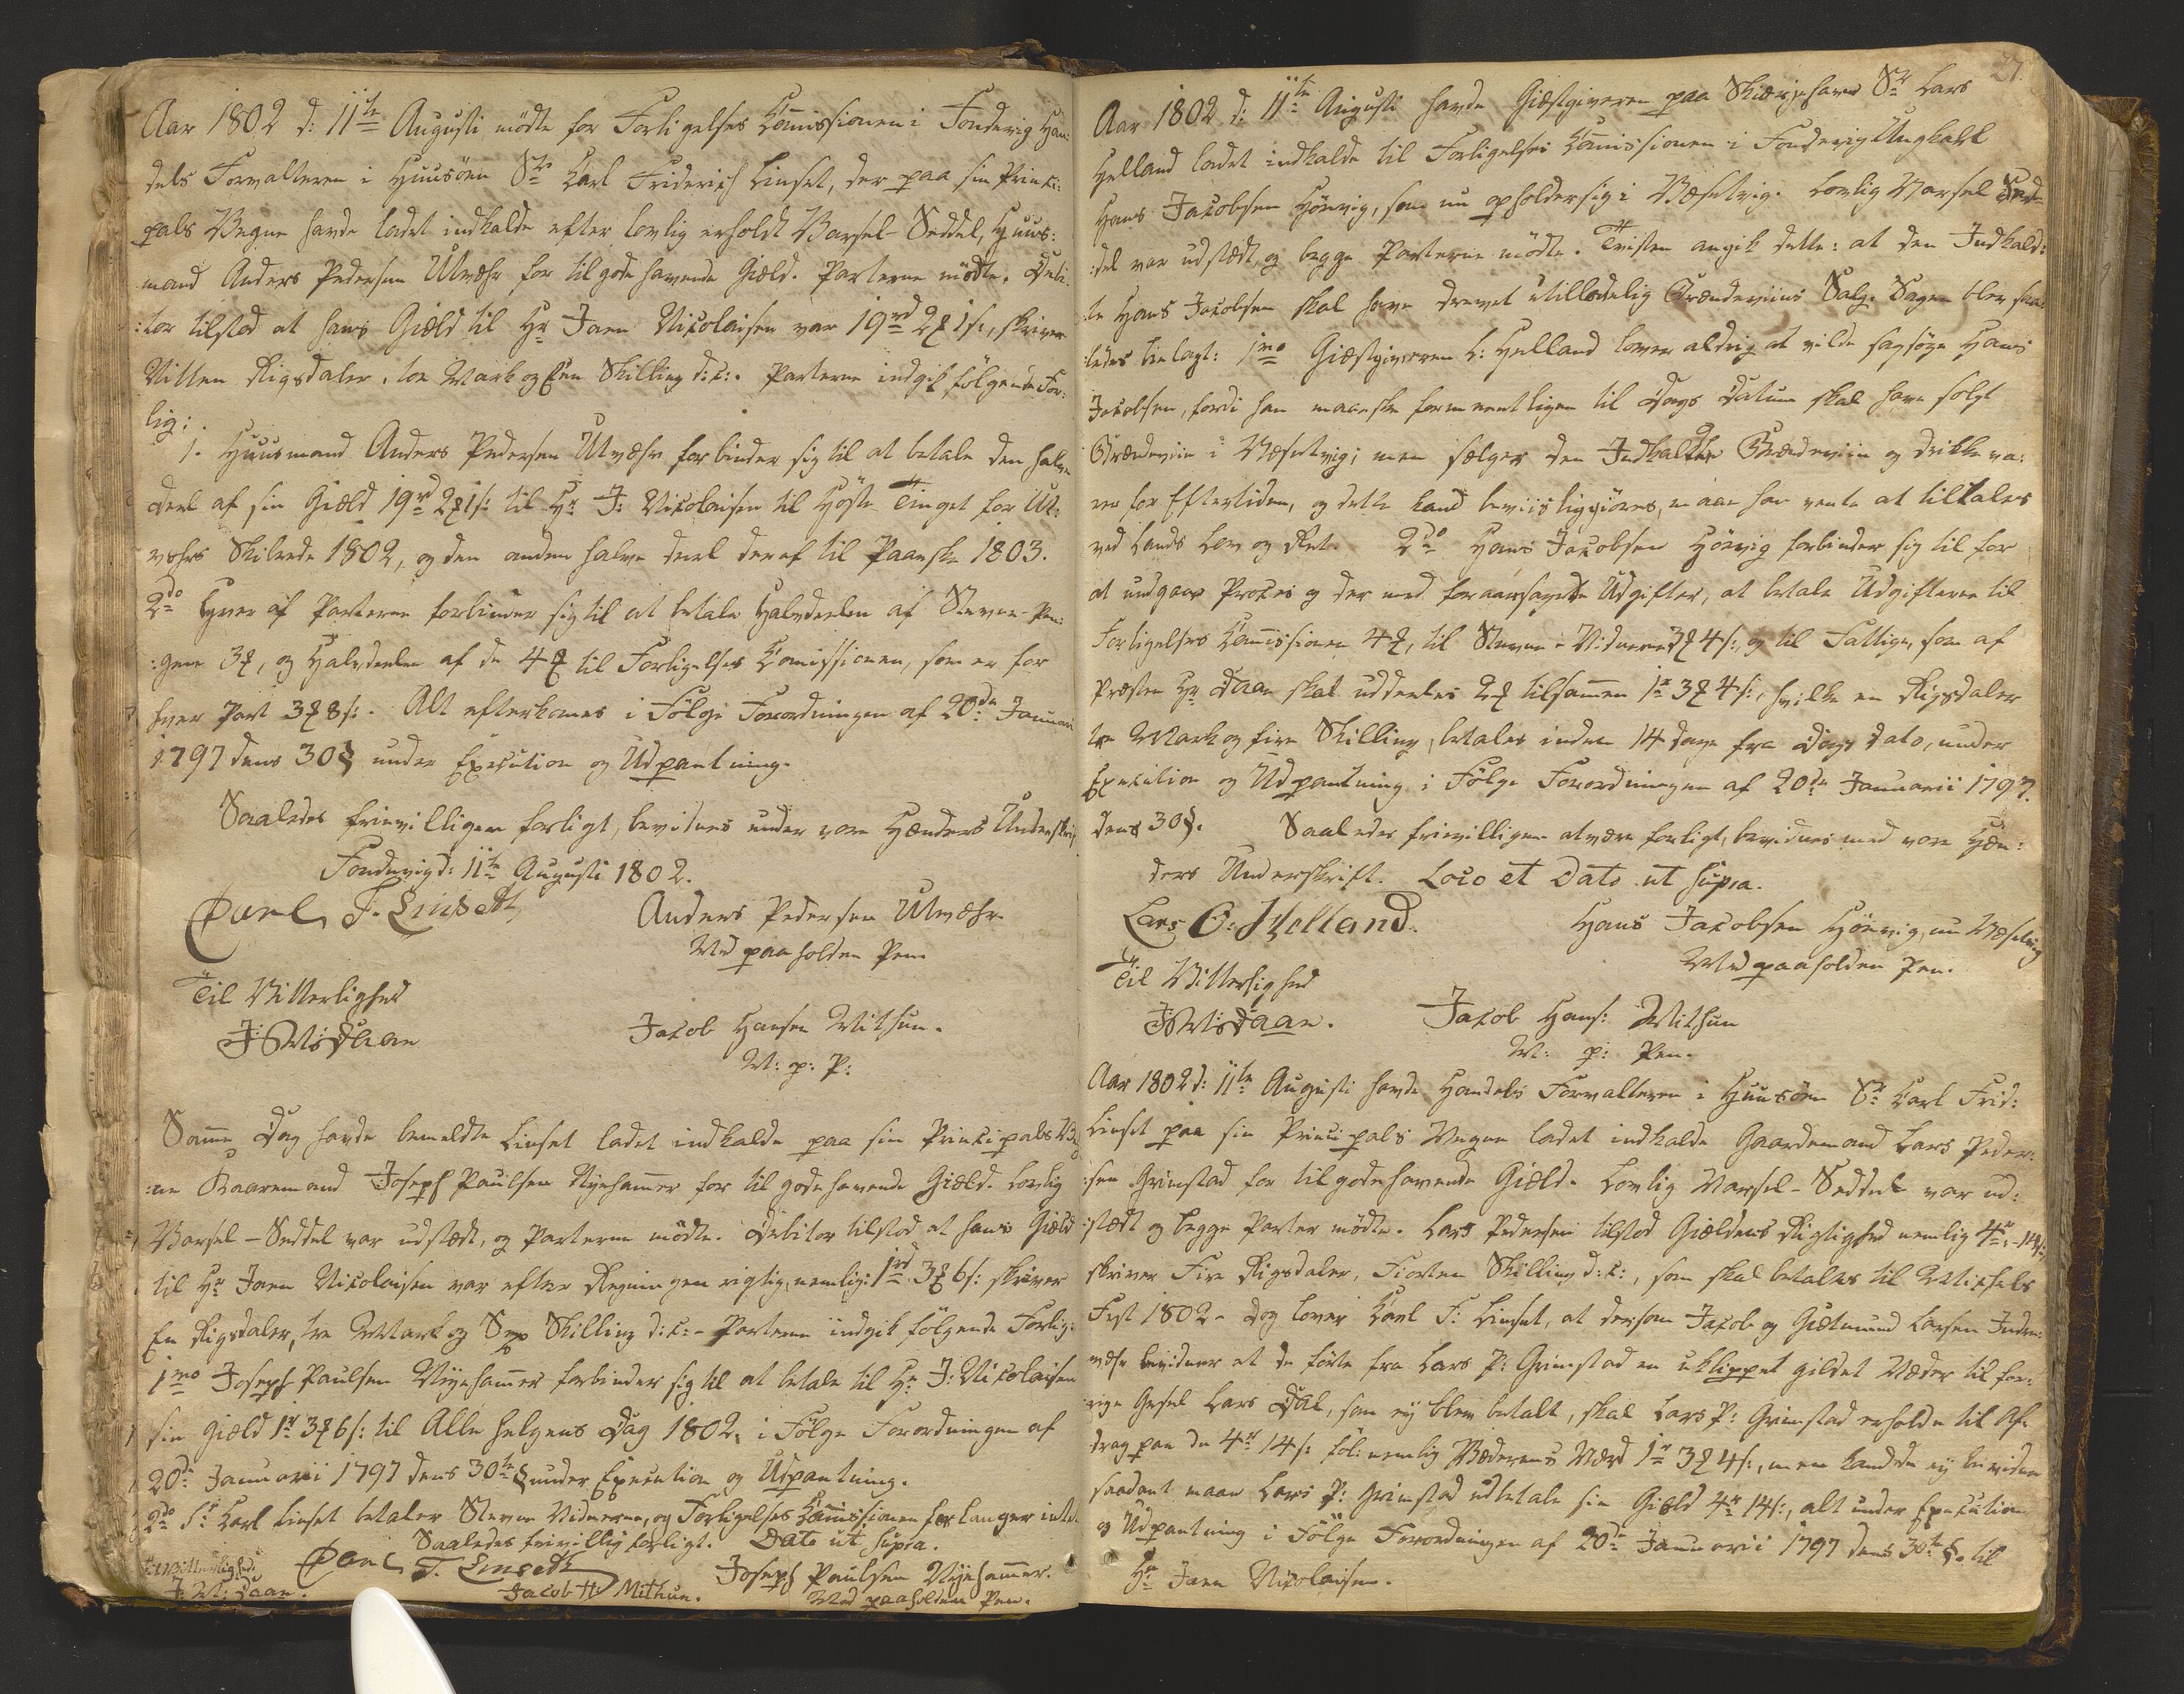 Aar 1802 d: 11te Augusti mödte for Forligelses Commissionen i Fondevig Han-
dels Forvalteren i Huusöen Sr Carl Friderich Linset, der paa sin Princi:
pals Vegne havde ladet indkalde efter lovlig erholdt Varsel-Seddel, Huus:
mand Anders Pedersen Utvæhr for tilgodehavende Giæld. Parterne mödte. Debi:
:tor tilstod at hans Giæld til Hr Jæen Nicolaisen var 19rd 2 ꝟ 1 s:, skriver
Nitten Rigsdaler, toe Mark og Een Skilling d: C:. Parterne indgik fölgende For:
lig:
1. Huusmand Anders Pedersen Utvæhr forbinder sig til at betale den halve
deel af sin Giæld 19rd 2 ꝟ 1 s: til Hr J: Nicolaisen til Höste Tinget for Ut:
vehrs Skibrede 1802, og den anden halve deel deraf til Paaske 1803.
2do Hver af Parterne forbinder sig til at betale Halvdeelen af Stevne-Pen:
:gene 3 ꝟ, og Halvdeelen af de 4 ꝟ til Forligelses Comissionen, som er for
hver Part 3 ꝟ 8 s:. Alt efterkomes i Fölge Forordningen af 20de Januarii
1797 dens 30 § under Execution og Udpantning.
Saaledes frievilligen forligt, bevidnes under vore Hænders Underskrif
Fondevig d: 11te Augusti 1802.
Carl F. Linseth Anders Pedersen Utvæhr
Med paaholden Pen
Til Vitterlighed
J: M: Daae Jacob Hansen Mithun.
M: p: P:
Samme Dag havde bemeldte Linset ladet indkalde paa sin Principals Ve
:ne Baaremand Joseph Paulsen Nyehamer for tilgodehavende Giæld. Lovlig
Varsel-Seddel var udstædt, og Parterne mödte. Debitor tilstod at hans Giæld
til Hr Jæen Nicolaisen var efter Regningen rigtig, nemlig: 1rd 3 ꝟ 6 s: skriver
En Rigsdaler, tre Mark og Sex Skilling d: C: - Parterne indgik fölgende Forlig:
1mo Joseph Paulsen Nyehamer forbinder sig til at betale til Hr J: Nicolaisen
sin Giæld 1r 3 ꝟ 6 s: til Alle helgens Dag 1802, i Fölge Forordningen af
20de Januarii 1797 dens 30te § under Execution og Udpantning.
2do Sr Carl Linset betaler Stevne Vidnerne, og Forligelses Comissionen forlanger intet.
Saaledes frivillig forligt. Dato ut supra.
til Vitterlighed: Carl F. Linseth Joseph Paulsen Nyehamer.
J: M: Daae. Jacob H: Mithun. Med paaholden Pen.
27.
Aar 1802 d: 11te Augusti havde Giæstgiveren paa Skierjehavn Sr Lars
Helland ladet indkalde til Forligelses Comissionen i Fondevig Ungkarl
Hans Jacobsen Hönvig, som nu opholder sig i Næsetvig. Lovlig Varsel Sed-
:del var udstædt, og begge Parterne mödte. Tvisten angik dette: at den Indkald:
:te Hans Jacobsen skal have drevet utilladelig Brændeviins Salg. Sagen blev saa:
ledes bielagt: 1mo Giæstgiveren L: Helland lover aldrig at vilde sagsöge Hans
Jacobsen, fordi han maaske formeentligen til Dags Datum skal have solgt
Brændeviin i Næsetvig; men sælger den Indkaldte Brændeviin og drikkeva:
rer for Eftertiden, og dette kand beviisliggiöres, maae han vente at tiltales
ved Lands Lov og Ret. 2do Hans Jacobsen Hönvig forbinder sig til for
at undgaae Proces og der med foraarsagede Udgifter, at betale Udgifterne til
Forligelses Comissionen 4 ꝟ, til Stevne-Vidnerne 3 ꝟ 4 s:, og til Fattige, som af
Præsten Hr Daae skal uddeeles 2 ꝟ tilsammen 1r 3 ꝟ 4 s:, hvilke en Rigsdaler
tre Mark og fire Skilling, betales inden 14 dage fra Dags dato, under
Execution og Udpantning i Fölge Forordningen af 20de Januarii 1797.
dens 30 §. Saaledes frievilligen at være forligt, bevidnes med vore Hæn:
ders Underskrift. Loco et Dato ut supra.
Lars O: Helland. Hans Jacobsen Hönvig, nu Næsetvig
Med paaholden Pen.
Til Vitterlighed
J: M: Daae. Jacob Hans: Mithun
M: p: Pen.
Aar 1802 d: 11te Augusti havde Handels Forvalteren i Huusöen Sr Carl Frid:
Linset paa sin Principals Vegne ladet indkalde Gaardemand Lars Peder:
:sen Grimstad for tilgodehavende Giæld. Lovlig Varsel-Seddel var ud:
:stædt og begge Parter mödte. Lars Pedersen tilstod Gieldens Rigtighed nemlig 4r - 14 s:
skriver Fire Rigsdaler, Fiorten Skilling d: C:, som skal betales til Michels
Fest 1802 - dog lover Carl F: Linset, at dersom Jacob og Giætmund Larsen Indre:
væhr bevidner at de förte fra Lars P: Grimstad en uklippet gildet Væder til for:
rige Gesel Lars Dal, som ey blev betalt, skal Lars P: Grimstad erholde til Af:
drag paa de 4r 14 s: föl: nemlig Væderens Værd 1r 3 ꝟ 4 s:, men kand de ey bevidne
saadant maae Lars P: Grimstad udbetale sin Giæld 4r 14 s:, alt under Execution
og Udpantning i Fölge Forordningen af 20de Januarii 1797 dens 30te §. til
Hr Jæen Nicolaisen.